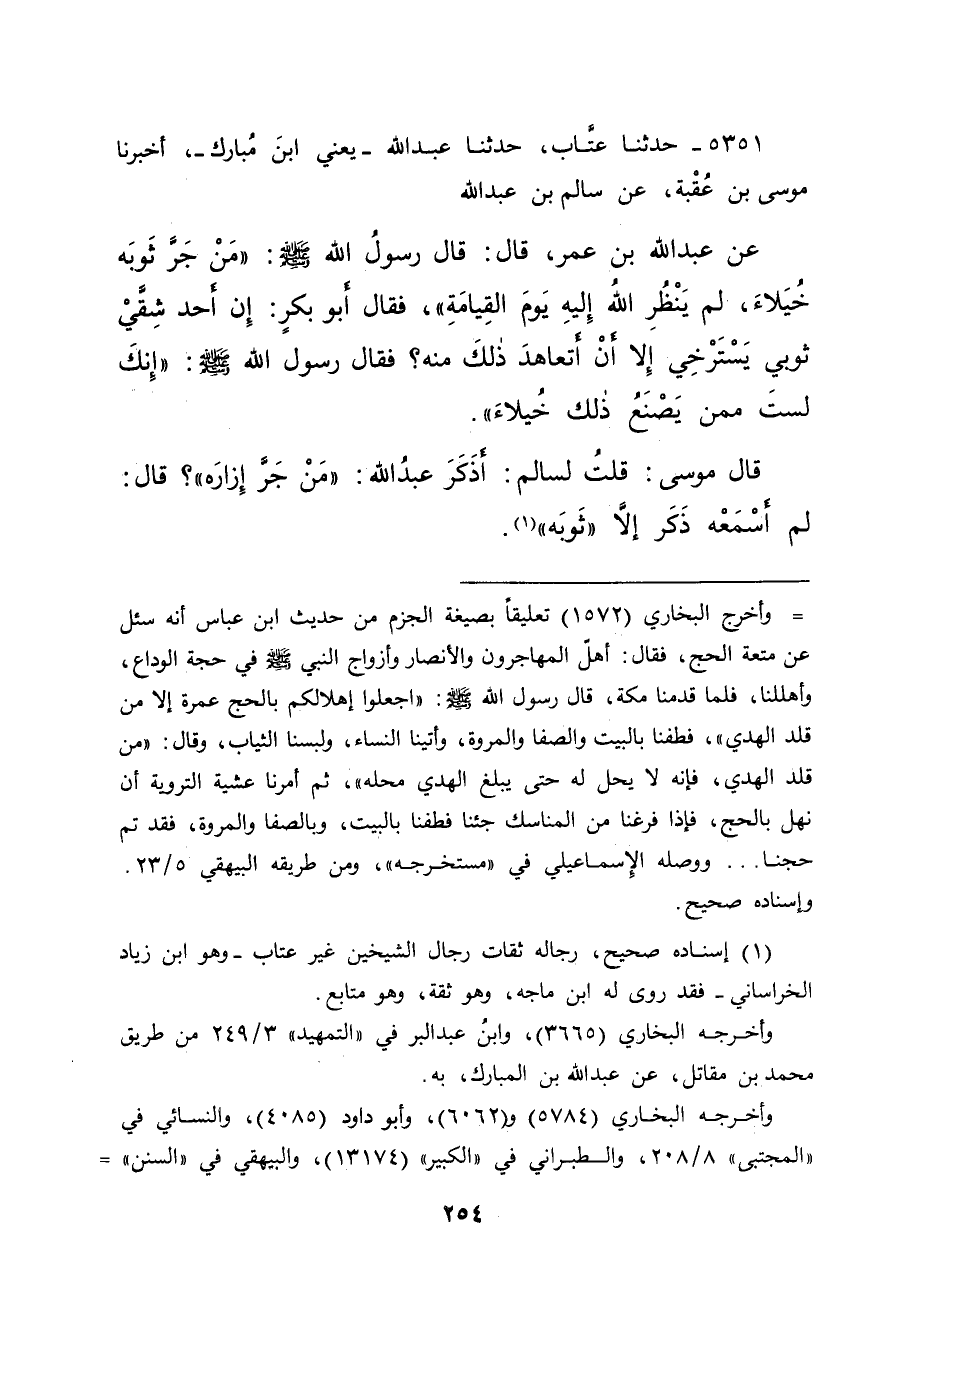 ٥٣٥١ ـ حدثنـا عتَّـاب، حدثنـا عبـدالله ـ يعني ابنَ مُبارك ـ، أخبرنا
موسى بن عُقْبة، عن سالم بن عبدالله
عن عبدالله بن عمر، قال: قال رسولُ الله ﷺ: «مَنْ جَرَّ ثَوبَه
خُيَلاءَ، لم يَنْظُرِ اللهُ إليهِ يَومَ القِيامَةِ»، فقال أَبو بكرٍ: إن أَحد شِقَّيْ
ثوبي يَسْتَرْخِي إلا أَنْ أَتعاهدَ ذٰلكَ منه؟ فقال رسول الله ﷺ: «إنكَ
لستَ ممن يَصْنَعُ ذٰلك خُيلاءَ».
قال موسى: قلتُ لسالم: أَذَكَرَ عبدُالله: «مَنْ جَرَّ إزارَه»؟ قال:
لم أَسْمَعْه ذَكَر إلاَّ «ثَوبَه»(١).
= وأخرج البخاري (١٥٧٢) تعليقاً بصيغة الجزم من حديث ابن عباس أنه سئل
عن متعة الحج، فقال: أهلّ المهاجرون والأنصار وأزواج النبي ﷺ في حجة الوداع،
وأهللنا، فلما قدمنا مكة، قال رسول الله ﷺ: «اجعلوا إهلالكم بالحج عمرة إلا من
قلد الهدي»، فطفنا بالبيت والصفا والمروة، وأتينا النساء، ولبسنا الثياب، وقال: «من
قلد الهدي، فإنه لا يحل له حتى يبلغ الهدي محله»، ثم أمرنا عشية التروية أن
نهل بالحج، فإذا فرغنا من المناسك جئنا فطفنا بالبيت، وبالصفا والمروة، فقد تم
حجنـا... ووصله الإسمـاعيلي في «مستخـرجـه»، ومن طريقه البيهقي ٢٣/٥.
وإسناده صحيح.
(١) إسنـاده صحيح، رجاله ثقات رجال الشيخين غير عتاب ـ وهو ابن زياد
الخراساني ـ فقد روى له ابن ماجه، وهو ثقة، وهو متابع.
وأخـرجـه البخاري (٣٦٦٥)، وابنُ عبدالبر في «التمهيد» ٢٤٩/٣ من طريق
محمد بن مقاتل، عن عبدالله بن المبارك، به.
وأخـرجـه البخـاري (٥٧٨٤) و(٦٠٦٢)، وأبو داود (٤٠٨٥)، والنسـائي في
«المجتبى» ٢٠٨/٨، والـطبـراني في «الكبير» (١٣١٧٤)، والبيهقي في «السنن» =
٢٥٤